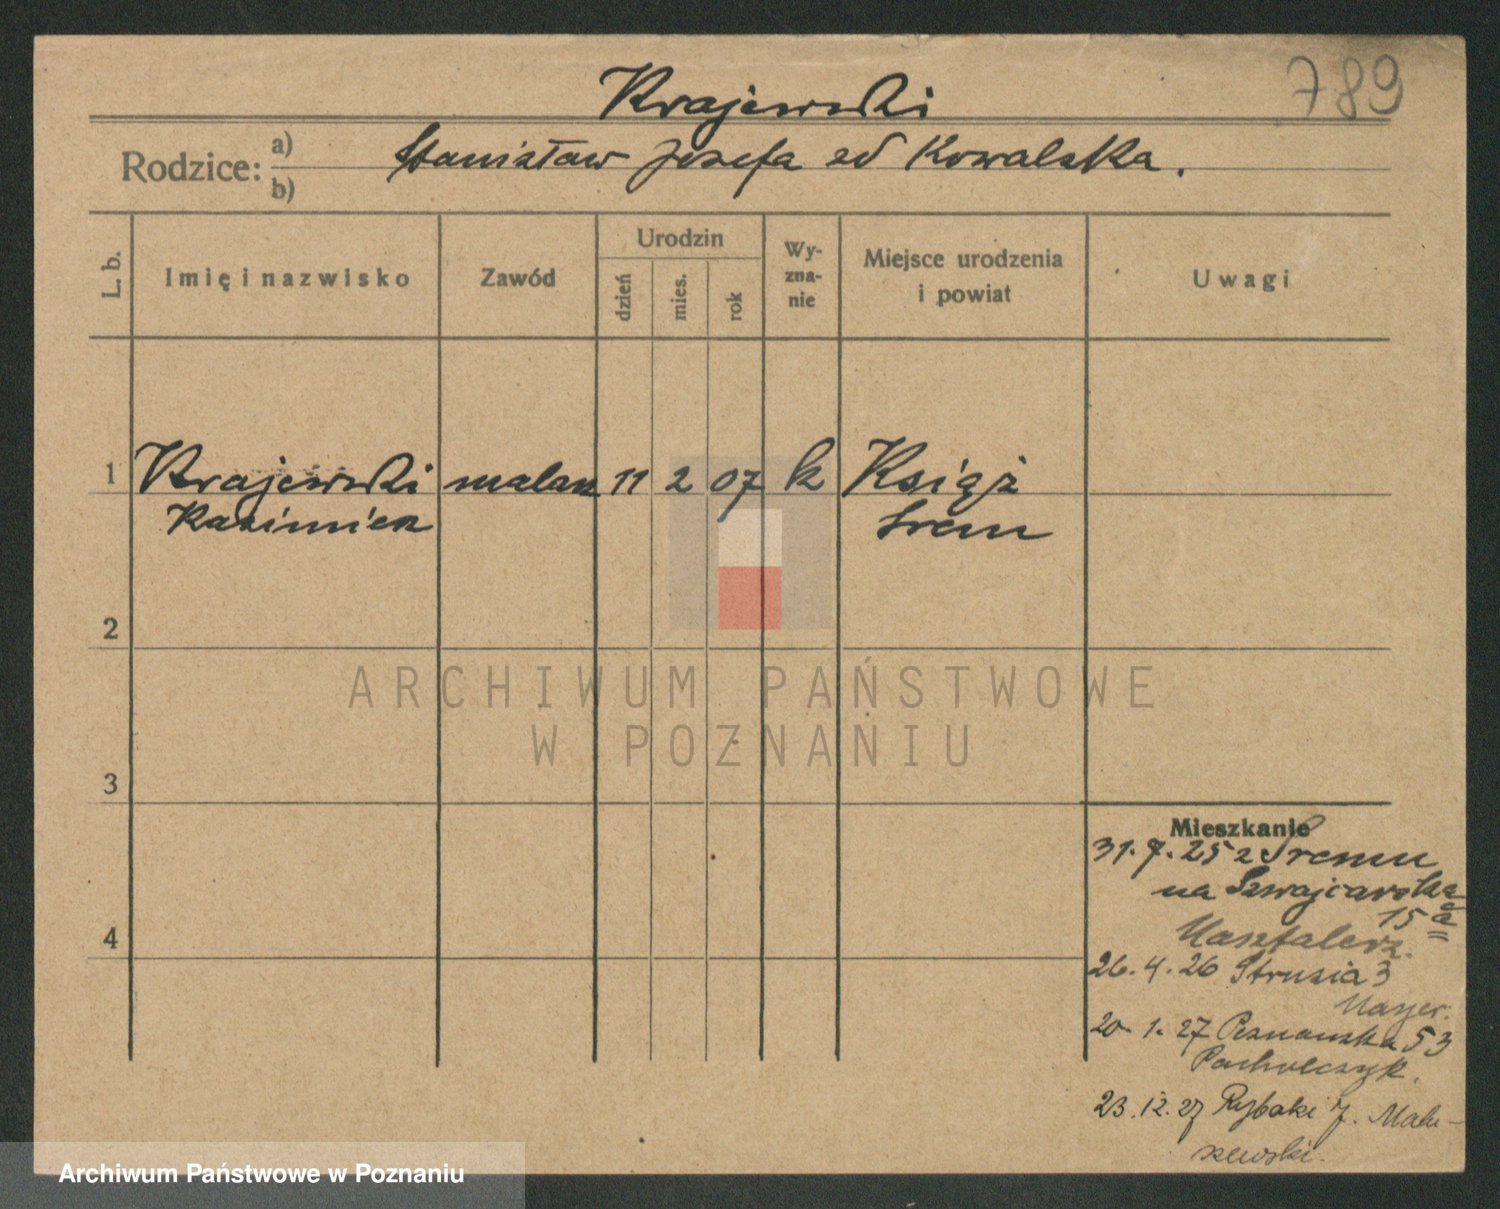 789
Krajewski
Rodzice: a) b) Stanisław Józefa zd Kowalska.
L. b. Imię i nazwisko Zawód Urodzin dzień mies. rok Wy-zna-nie Miejsce urodzenia i powiat Uwagi
1 Krajewski malarz 11 2 07 k Książ
Kazimierz Śrem
2
3
4
Mieszkanie
31.7.25 z Śremu
na Szwajcarska
15 a
Masztalerz.
26.4.26 Strusia 3
Mayer.
20.1.27 Poznańska 53
Pacholczyk.
23.12.27 Rybaki 7. Malu-
szewski.
ARCHIWUM PAŃSTWOWE
W POZNANIU
Archiwum Państwowe w Poznaniu